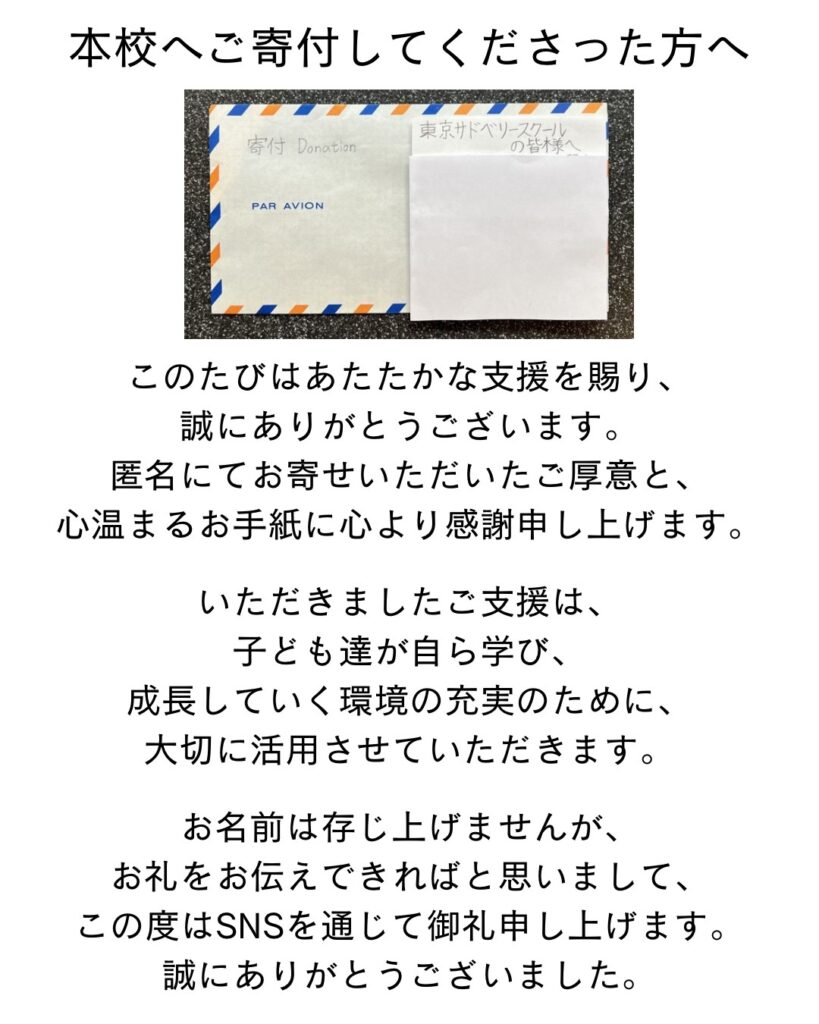 本校へご寄付してくださった方へ
寄付 Donation
PAR AVION
東京サドベリースクール
の皆様へ
このたびはあたたかな支援を賜り、
誠にありがとうございます。
匿名にてお寄せいただいたご厚意と、
心温まるお手紙に心より感謝申し上げます。
いただきましたご支援は、
子ども達が自ら学び、
成長していく環境の充実のために、
大切に活用させていただきます。
お名前は存じ上げませんが、
お礼をお伝えできればと思いまして、
この度はSNSを通じて御礼申し上げます。
誠にありがとうございました。